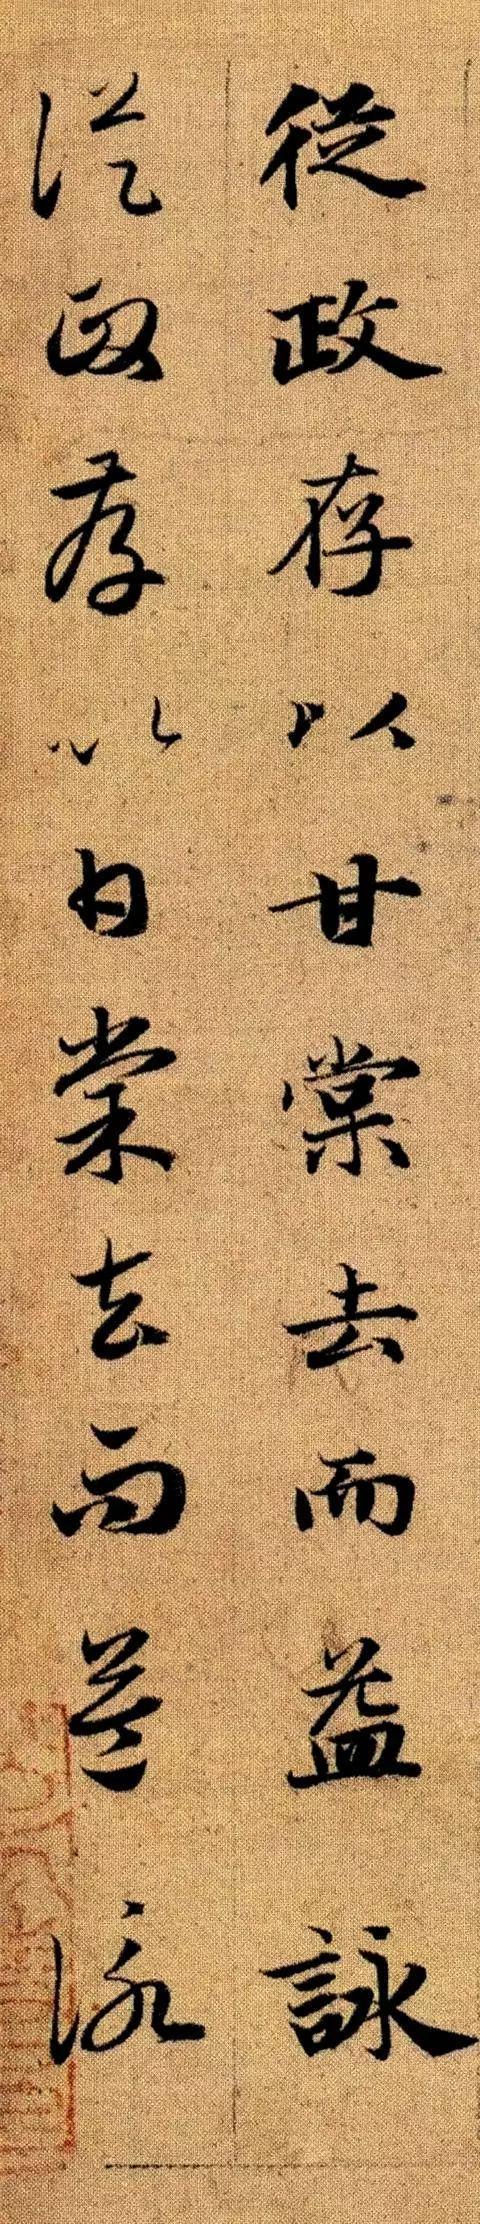 從政存以甘棠去而益詠
從政存以甘棠去而益詠